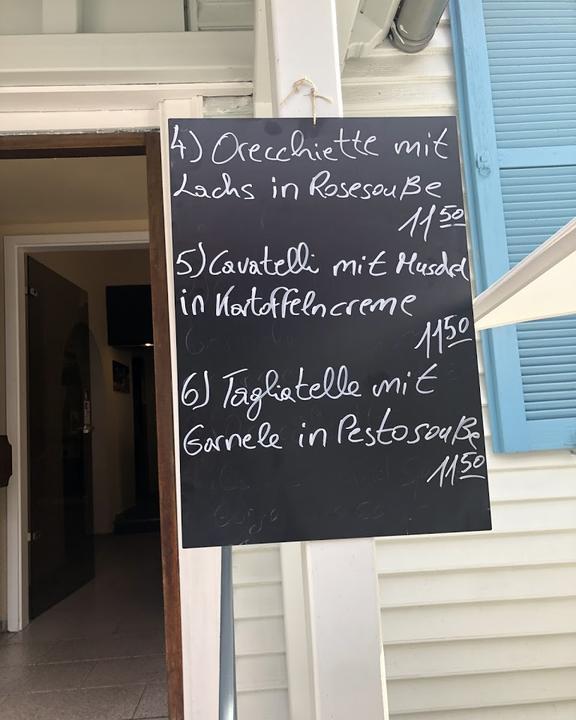 4) Orecchiette mit
Lachs in Rosesouße
11 50
5) Cavatelli mit Muschel
in Kartoffelncreme
11 50
6) Tagliatelle mit
Garnele in Pestosouße
11 50